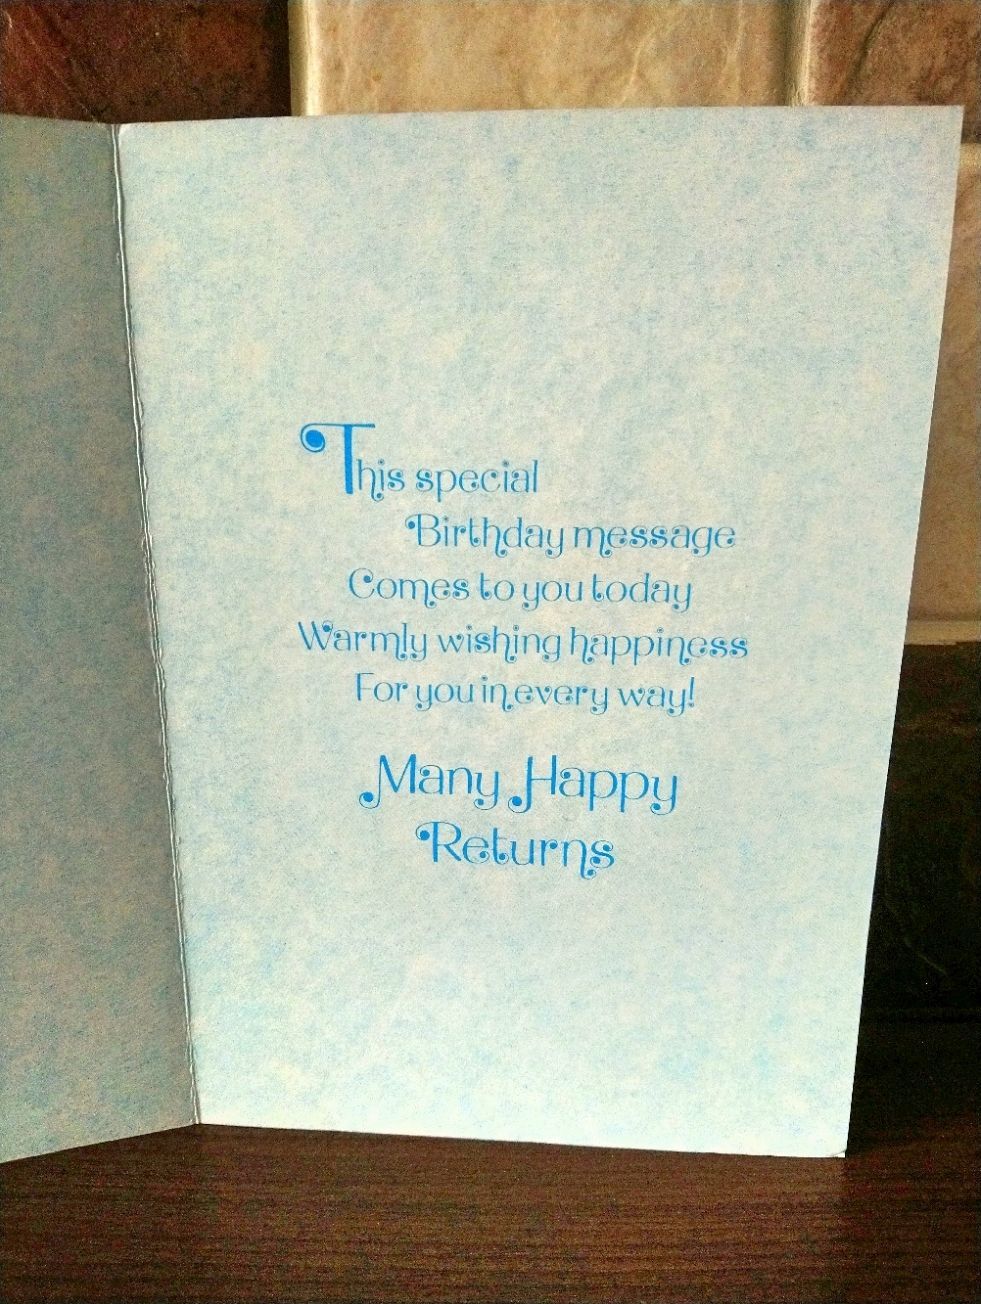 This special
Birthday message
Comes to you today
Warmly wishing happiness
For you in every way!
Many Happy
Returns